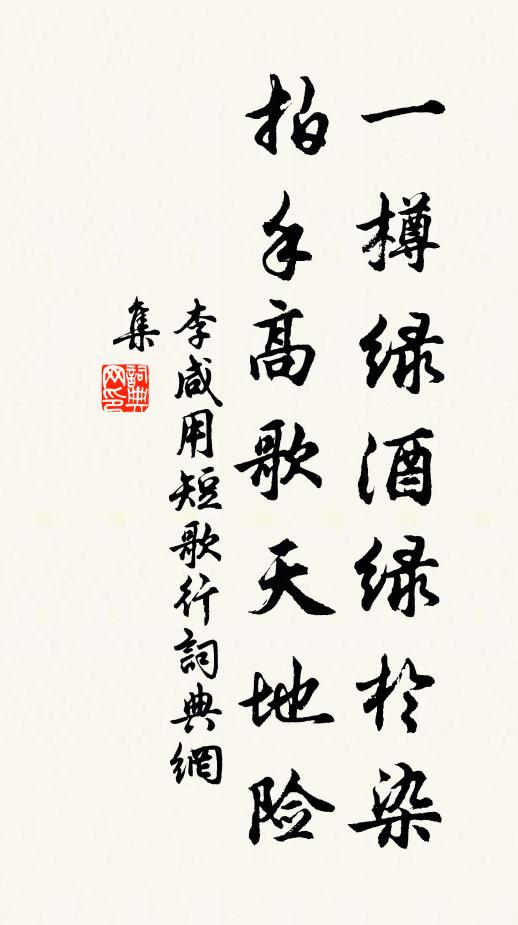 一樽绿酒绿於染
拍手高歌天地险
李咸用短歌行詞典網
集
詞典
网印